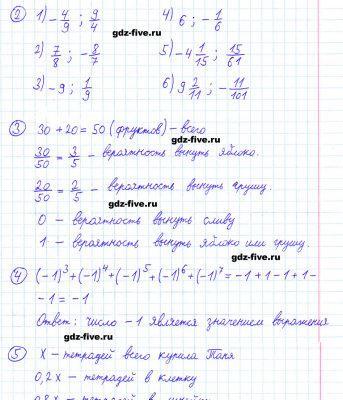 ② 1) -4/9 ; 9/4 4) 6 ; -1/6
gdz-five.ru
2) 7/8 ; -8/7 5) -4 1/15 ; 15/61
gdz-five.ru
3) -9 ; 1/9 6) 9 2/11 ; -11/101
③ 30 + 20 = 50 (фруктов) - всего
gdz-five.ru
30/50 = 3/5 - вероятность вынуть яблоко.
20/50 = 2/5 - вероятность вынуть грушу.
gdz-five.ru
0 - вероятность вынуть сливу
1 - вероятность вынуть яблоко или грушу.
gdz-five.ru
④ (-1)³+(-1)⁴+(-1)⁵+(-1)⁶+(-1)⁷= -1+1-1+1-
-1 = -1
gdz-five.ru
Ответ: число -1 является значением выражения
gdz-five.ru
⑤ x - тетрадей всего купила Таня
0,2x - тетрадей в клетку
gdz-five.ru